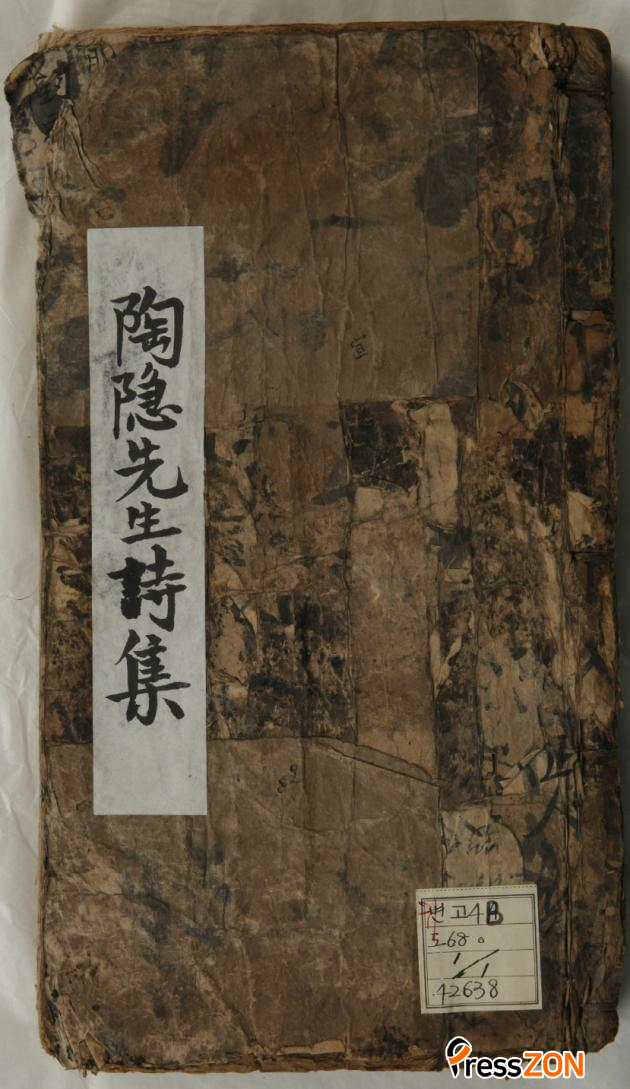 陶隐先生詩集
宜
변고4B
도68。
1/1
42638
PressZON